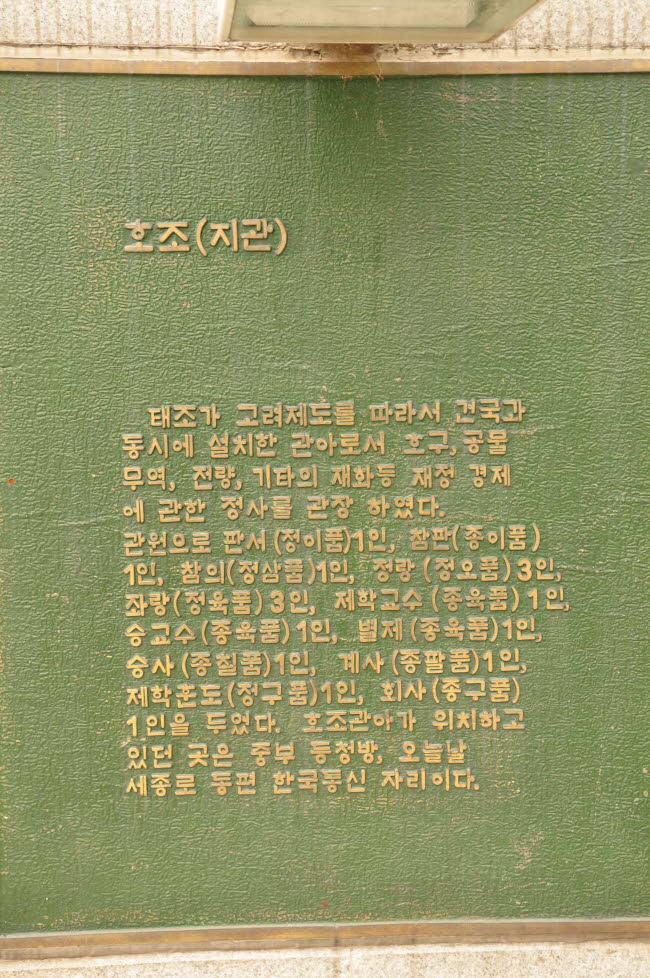 호조(지관)
태조가 고려제도를 따라서 건국과
동시에 설치한 관아로서 호구, 공물
무역, 전량, 기타의 재화등 재정 경제
에 관한 정사를 관장 하였다.
관원으로 판서(정이품)1인, 참판(종이품)
1인, 참의(정삼품)1인, 정랑(정오품)3인,
좌랑(정육품)3인, 제학교수(종육품)1인,
승교수(종육품)1인, 별제(종육품)1인,
승사(종칠품)1인, 계사(종팔품)1인,
제학훈도(정구품)1인, 회사(종구품)
1인을 두었다. 호조관아가 위치하고
있던 곳은 중부 등청방, 오늘날
세종로 동편 한국통신 자리이다.